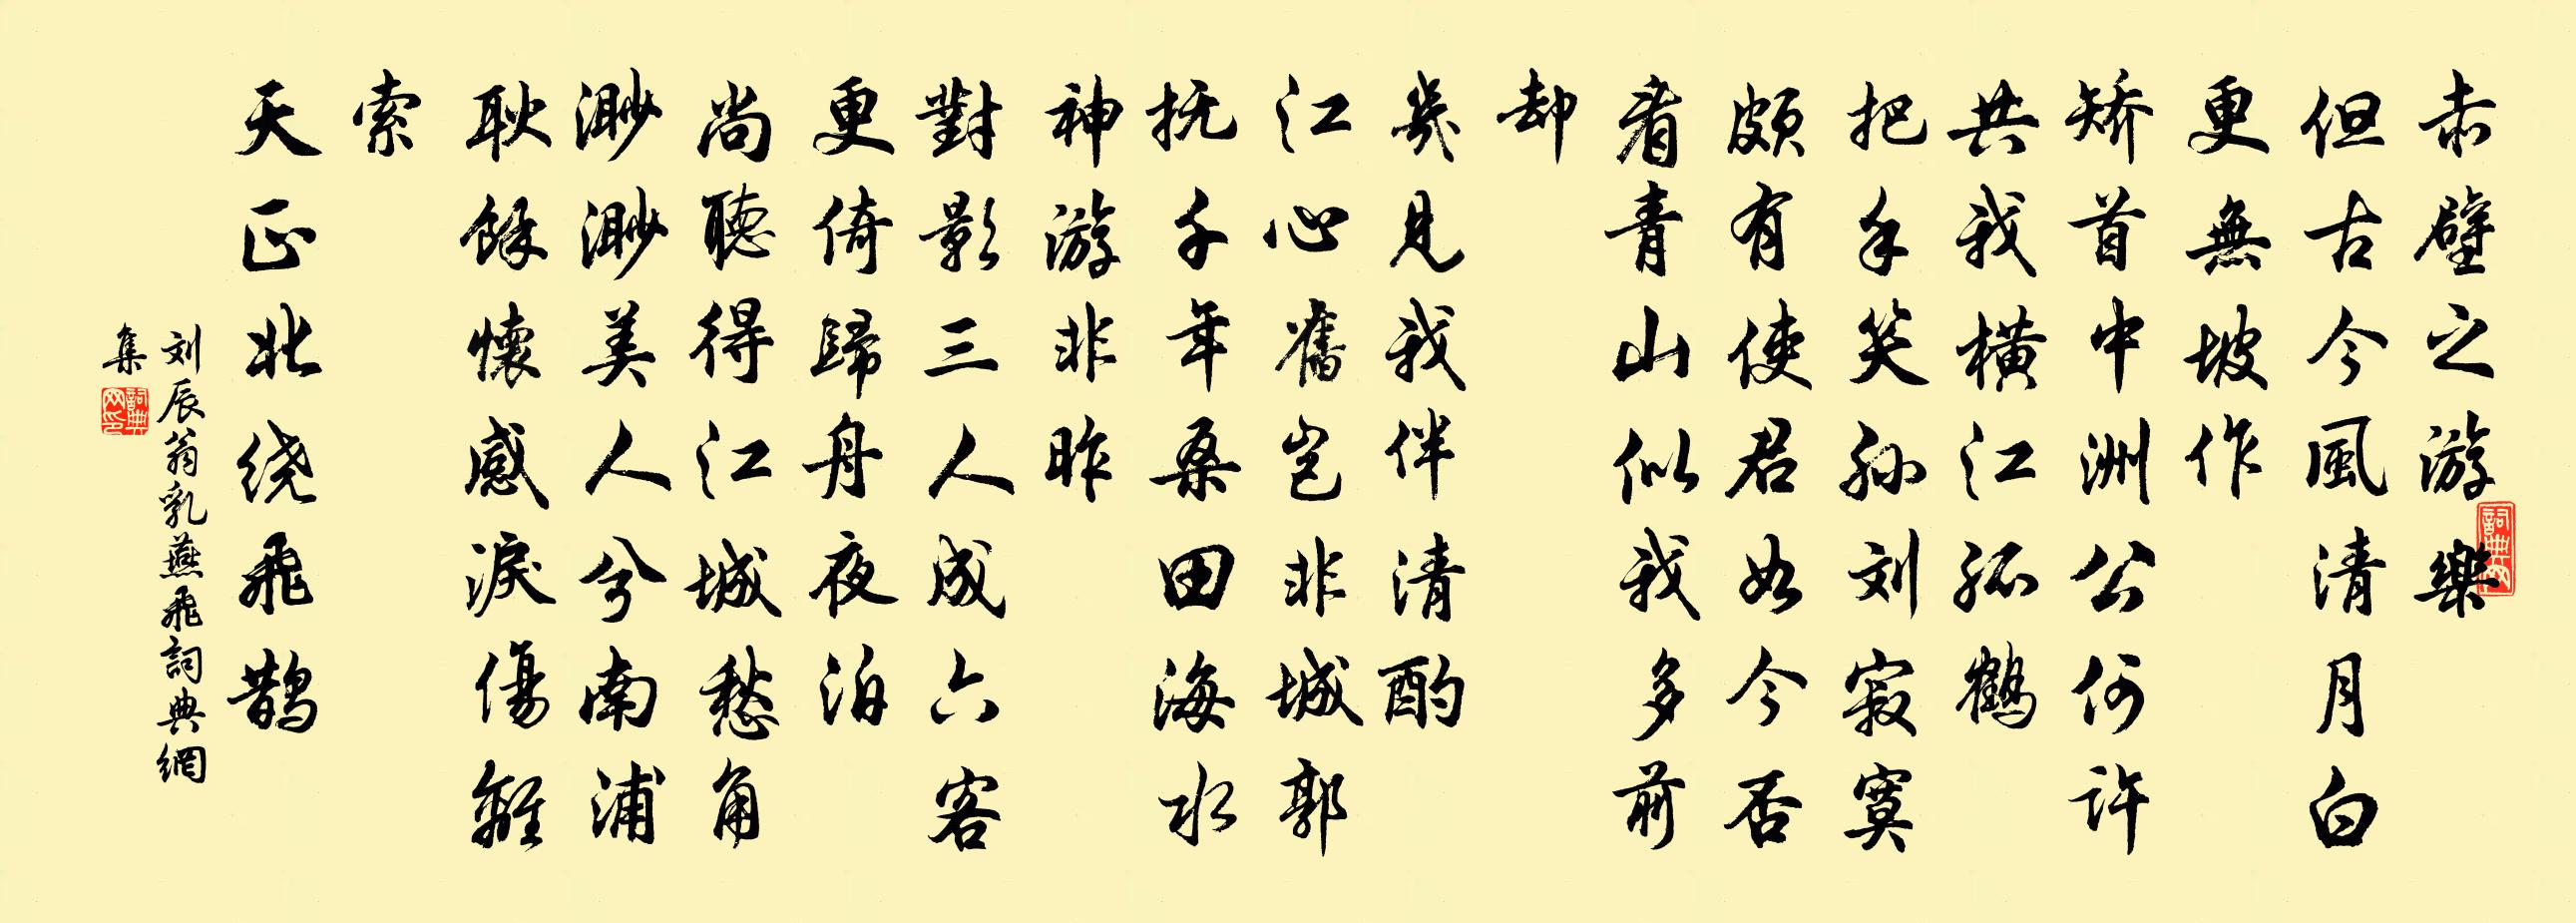 赤壁之游樂
但古今風清月白
更無坡作
矫首中洲公何許
共我橫江孤鶴
把手笑孙刘寂寞
颇有使君如今否
看青山似我多前
却
幾見我伴清酌
江心舊豈非城郭
抚千年桑田海水
神游非昨
對影三人成六客
更倚歸舟夜泊
尚聽得江城愁角
渺渺美人兮南浦
耿餘懷感淚傷離
索
天正北绕飛鹊
刘辰翁乳燕飛詞典網
集